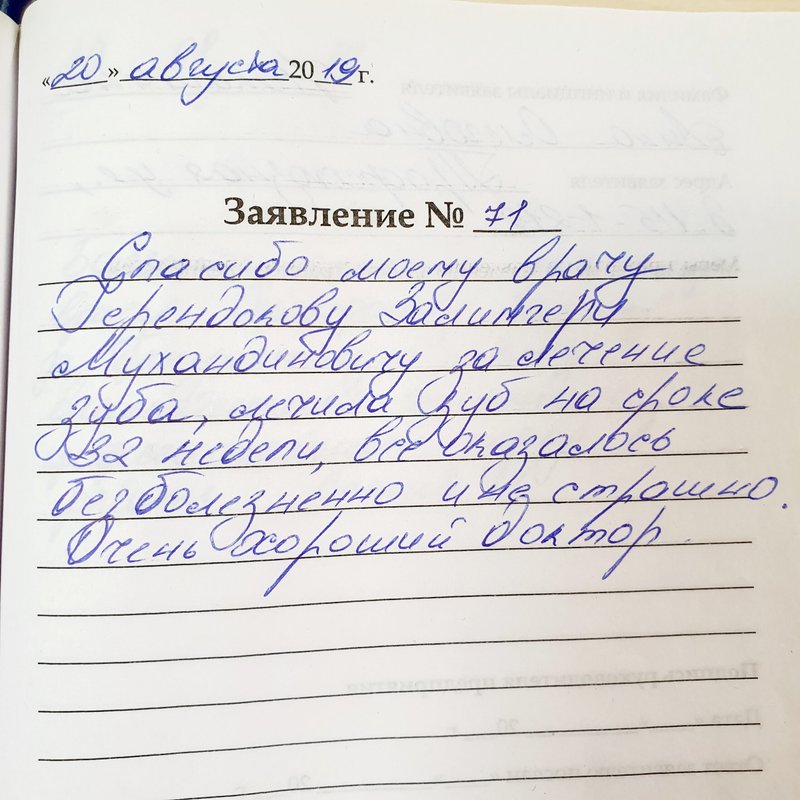 «20» августа 2019 г.
Заявление № 71
Спасибо моему врачу
Герендокову Залимгери
Мухандиновичу за лечение
зуба, лечила зуб на сроке
32 недели, все оказалось
безболезненно и не страшно.
Очень хороший доктор.